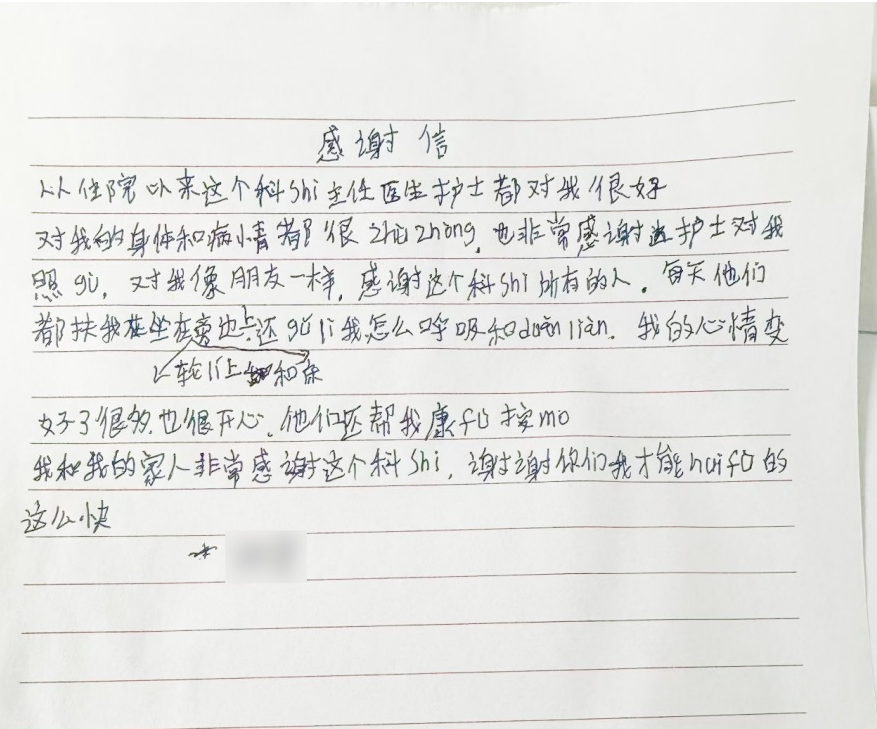 感谢信
从住院以来这个科shi主任医生护士都对我很好
对我的身体和病情都很zhùzhòng,也非常感谢护士对我
照gù,对我像朋友一样,感谢这个科shi所有的人。每天他们
都扶我坐在旁边上还gǔlì我怎么呼吸和duànliàn。我的心情变
轮ǐ上和床
好了很多也很开心。他们还帮我康fù按mó
我和我的家人非常感谢这个科shi,谢谢你们我才能huīfù的
这么快